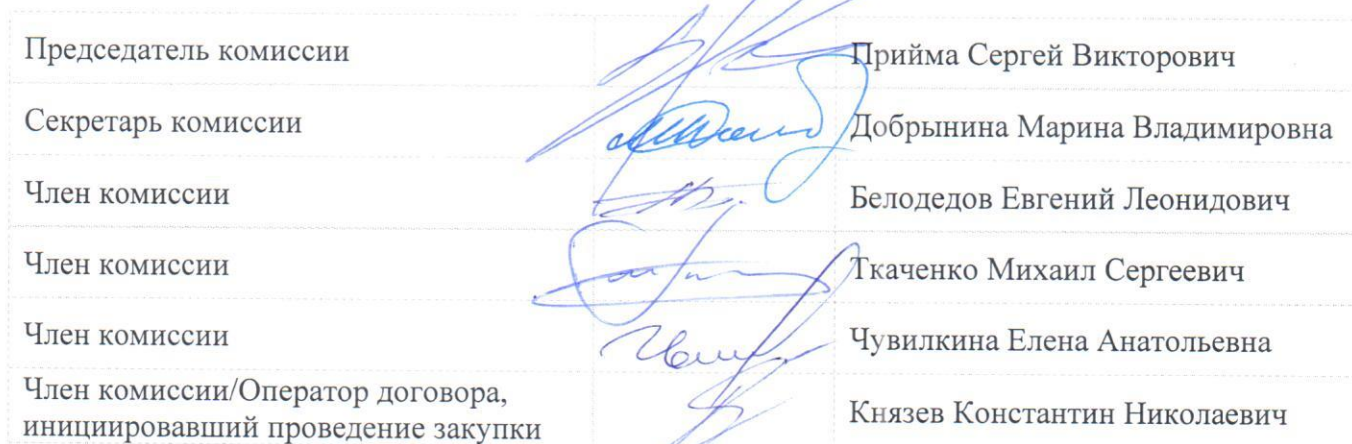 Председатель комиссии Прийма Сергей Викторович
Секретарь комиссии Добрынина Марина Владимировна
Член комиссии Белодедов Евгений Леонидович
Член комиссии Ткаченко Михаил Сергеевич
Член комиссии Чувилкина Елена Анатольевна
Член комиссии/Оператор договора,
инициировавший проведение закупки Князев Константин Николаевич